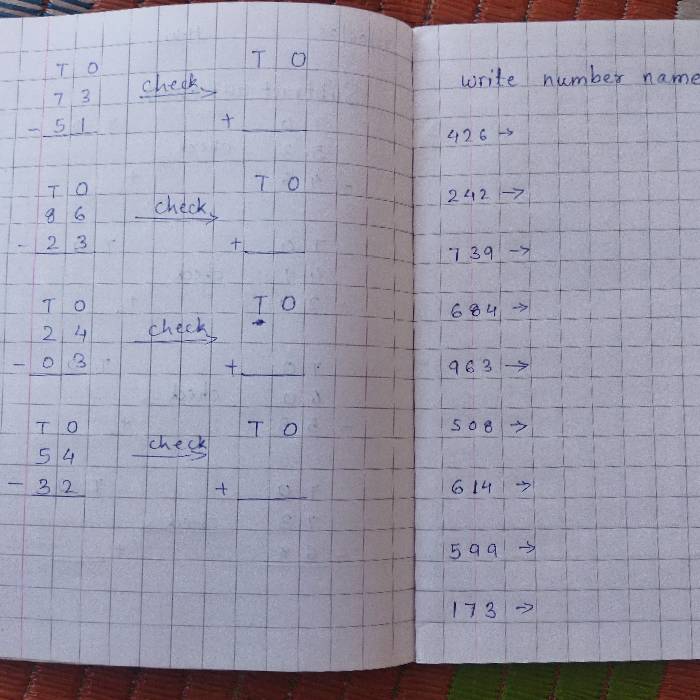 T O T O
7 3 check
- 5 1 +
T O T O
8 6 check
- 2 3 +
T O T O
2 4 check
- 0 3 +
T O T O
5 4 check
- 3 2 +
write number name
426 →
242 →
739 →
684 →
963 →
508 →
614 →
599 →
173 →